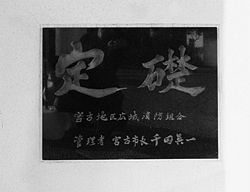 定礎
宮古地区広域消防組合
管理者 宮古市長 千田真一